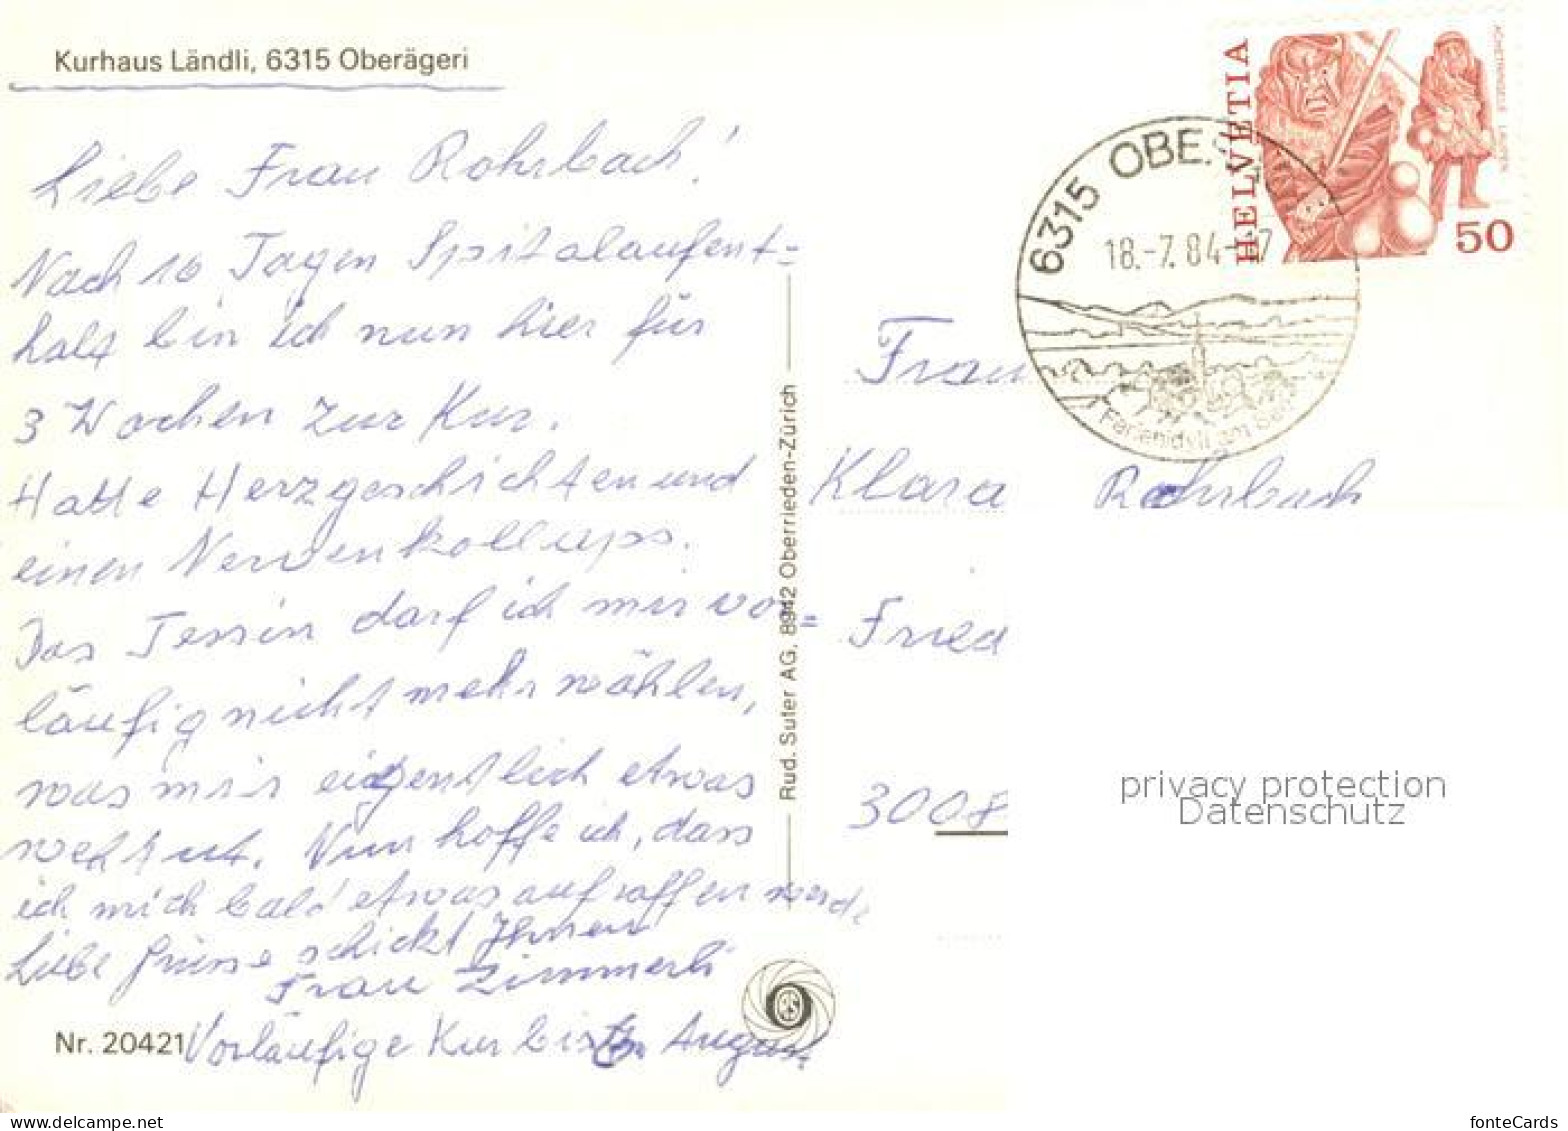 Kurhaus Ländli, 6315 Oberägeri
Liebe Frau Rohrbach!
Nach 10 Tagen Spitalaufent=
halt bin ich nun hier für
3 Wochen zur Kur.
Hatte Herzgeschichten und
einen Nervenkollups.
Das Tessin darf ich mir vor=
läufig nicht mehr wählen,
was mir eigentlich etwas
weh tut. Nun hoffe ich, dass
ich mich bald etwas aufraffen werde
Liebe Grüsse schickt Ihnen
Frau Zimmerli
Nr. 20421
Vorläufige Kur bis August
Rud. Suter AG, 8942 Oberrieden-Zürich
HELVETIA
ACHETRINGELE LAUPEN
50
6315 OBE
18.-7.84-17
Ferienidyll am See
Frau
Klara Rohrbach
Fried
3008
privacy protection
Datenschutz
www.delcampe.net
fonteCards